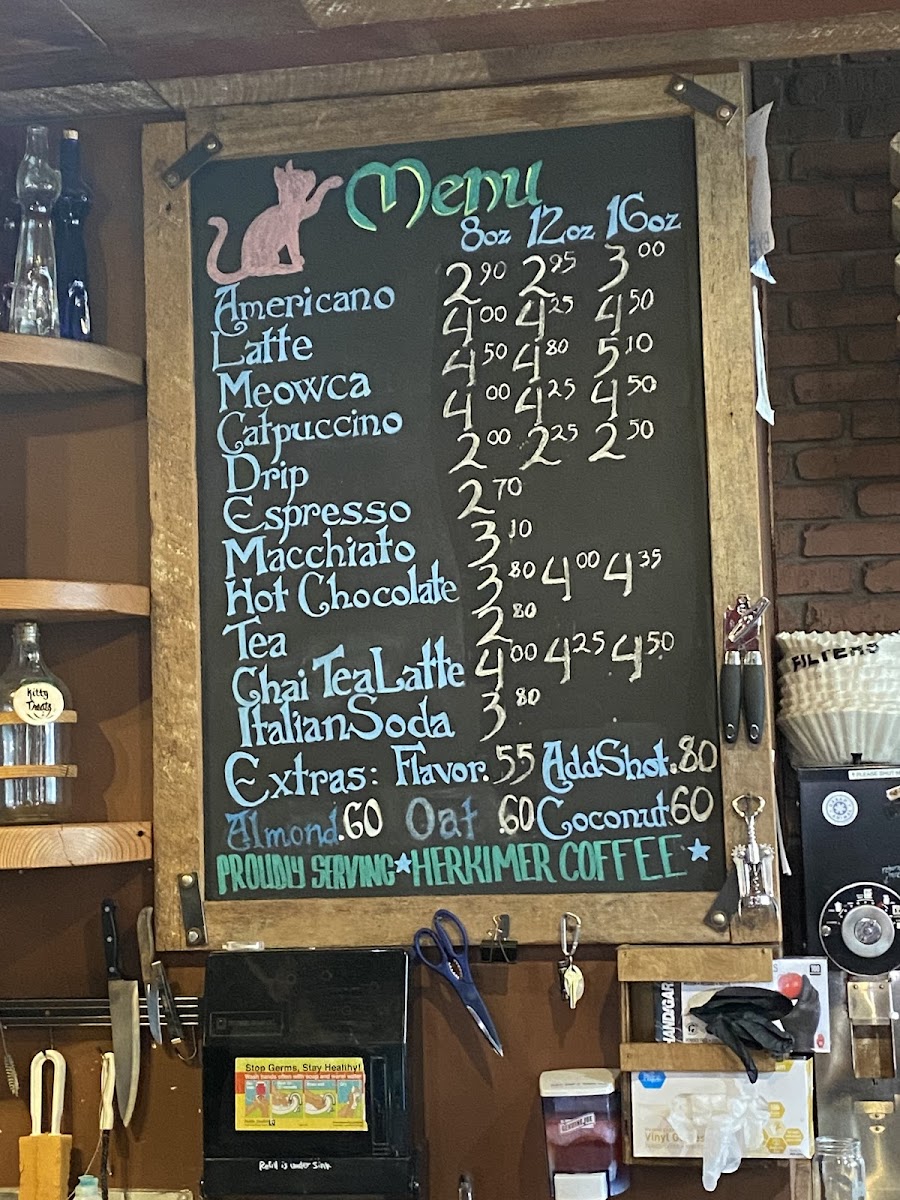 Menu
8oz 12oz 16oz
Americano 2.90 2.95 3.00
Latte 4.00 4.25 4.50
Meowca 4.50 4.80 5.10
Catpuccino 4.00 4.25 4.50
Drip 2.00 2.25 2.50
Espresso 2.70
Macchiato 3.10
Hot Chocolate 3.80 4.00 4.35
Tea 2.80
Chai Tea Latte 4.00 4.25 4.50
Italian Soda 3.80
Extras: Flavor .55 Add Shot .80
Almond .60 Oat .60 Coconut 60
PROUDLY SERVING HERKIMER COFFEE
Kitty
Treats
FILTERS
Stop Germs, Stay Healthy!
Wash hands often with soap and warm water
Refill is under sink
Vinyl